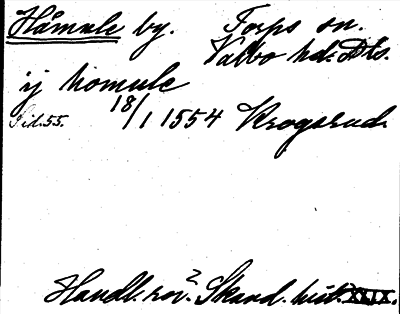 Håmule by. Torps sn.
Valbo hd. Dls.
ij homule
Sid. 55. 18/1 1554 Krogsrud
Handl. rör. Skand. hist. XXIX.